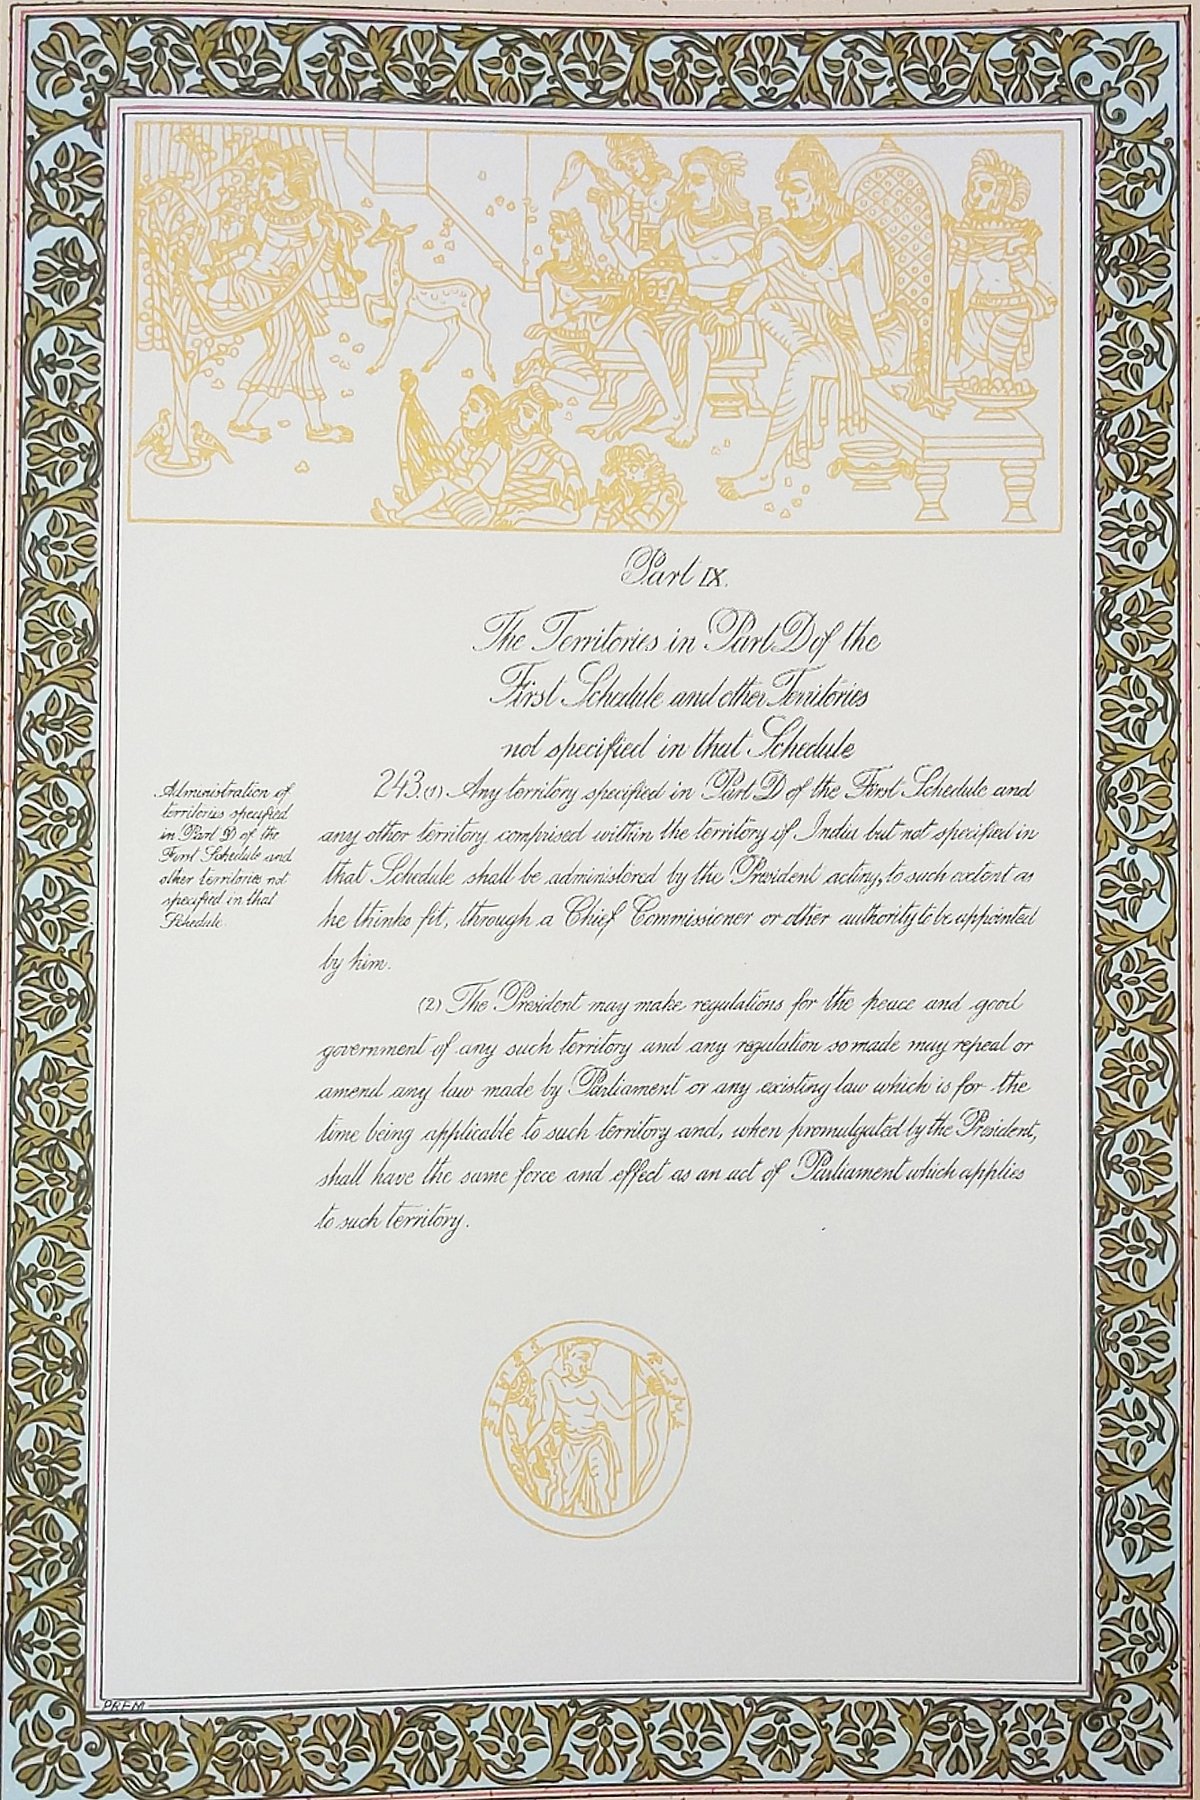 Part IX.
The Territories in Part D of the
First Schedule and other Territories
not specified in that Schedule
Administration of
territories specified
in Part D of the
First Schedule and
other territories not
specified in that
Schedule.
243.(1) Any territory specified in Part D of the First Schedule and
any other territory comprised within the territory of India but not specified in
that Schedule shall be administered by the President acting, to such extent as
he thinks fit, through a Chief Commissioner or other authority to be appointed
by him.
(2) The President may make regulations for the peace and good
government of any such territory and any regulation so made may repeal or
amend any law made by Parliament or any existing law which is for the
time being applicable to such territory and, when promulgated by the President,
shall have the same force and effect as an act of Parliament which applies
to such territory.
PREM